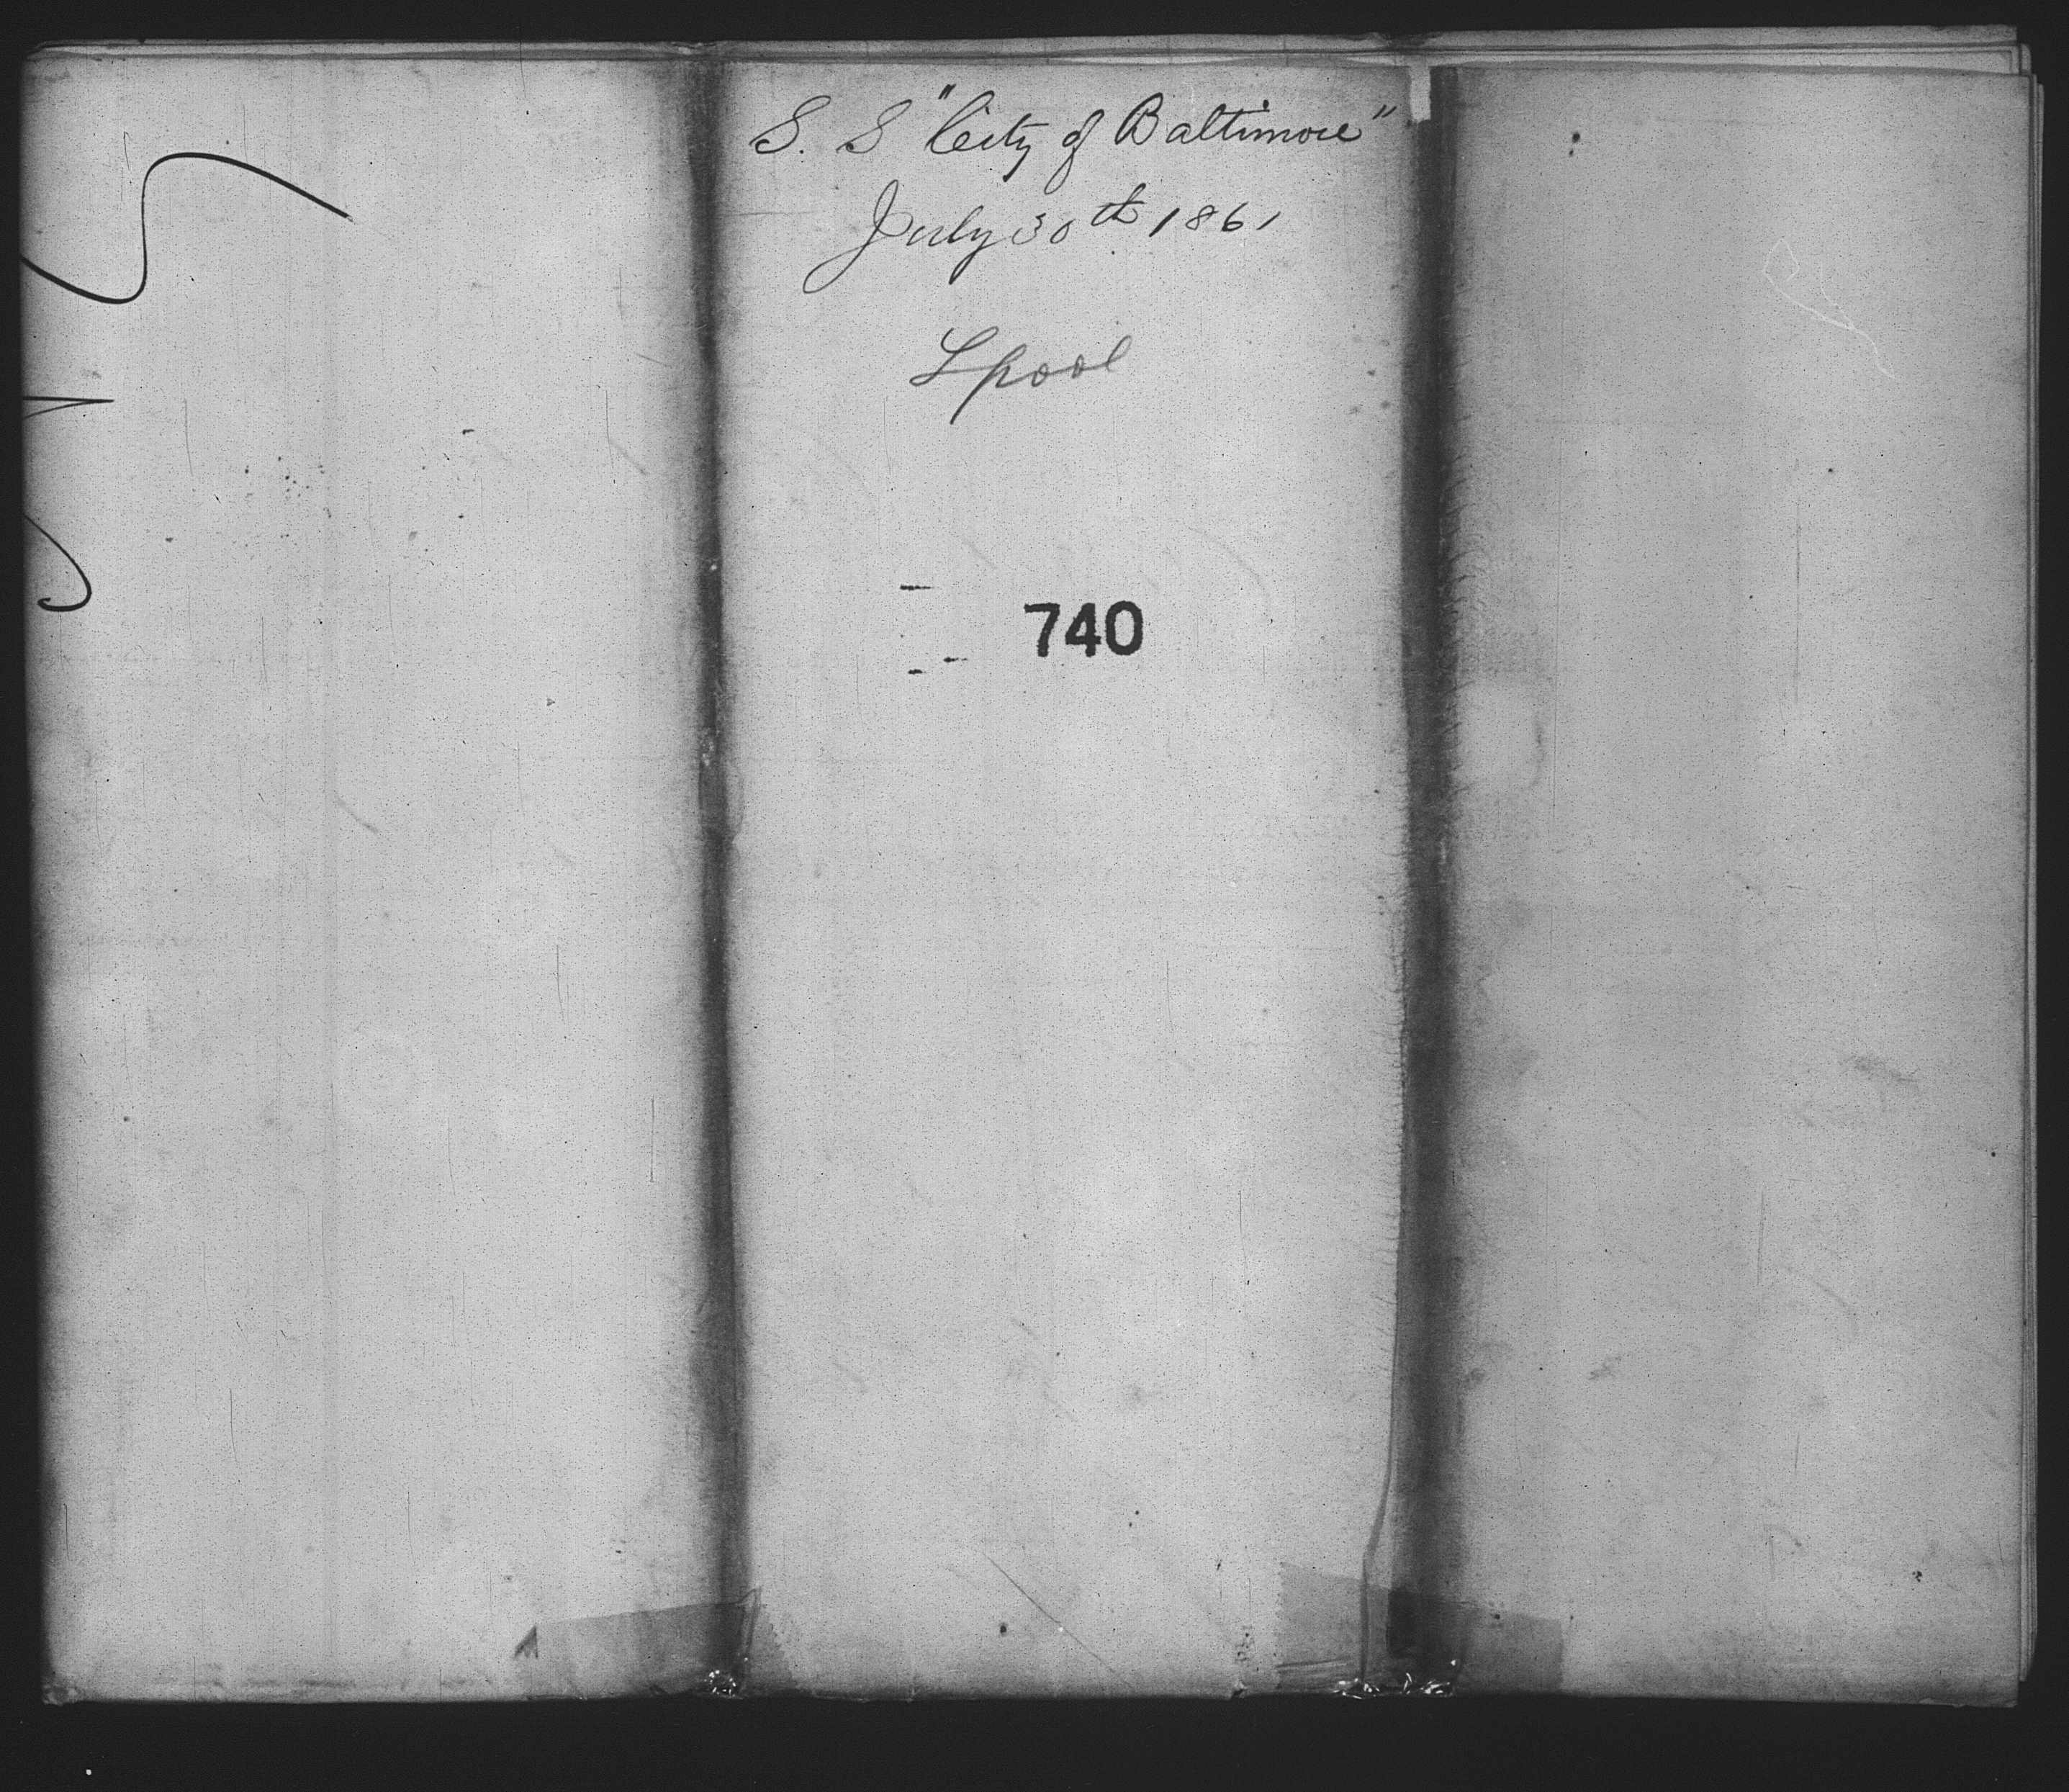 S. S "City of Baltimore"
July 30th 1861
Lpool
740